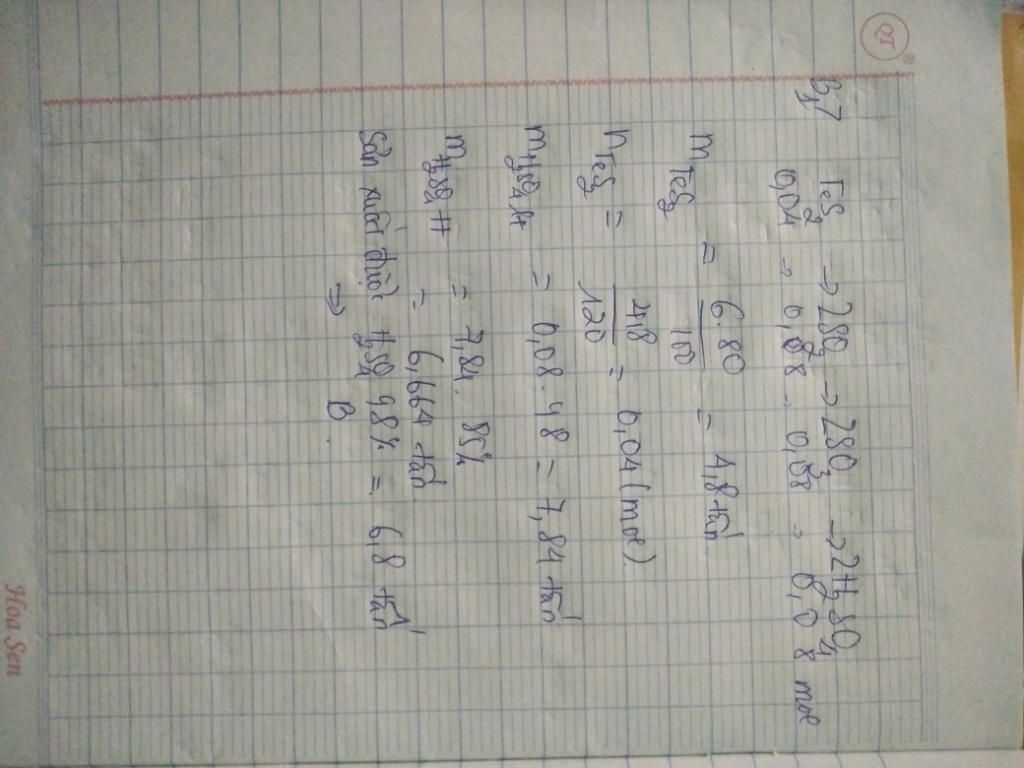 B17 FeS2 → 2SO2 → 2SO3 → 2H2SO4
0,04 → 0,08 → 0,08 → 0,08 mol
mFeS2 = 6.80/100 = 4,8 tấn
nFeS2 = 4,8/120 = 0,04 (mol)
mH2SO4 lt = 0,08 . 98 = 7,84 tấn
mH2SO4 tt = 7,84 . 85%
= 6,664 tấn
Sản xuất được H2SO4 98% = 6,8 tấn
⇒ B
Hoa Sen